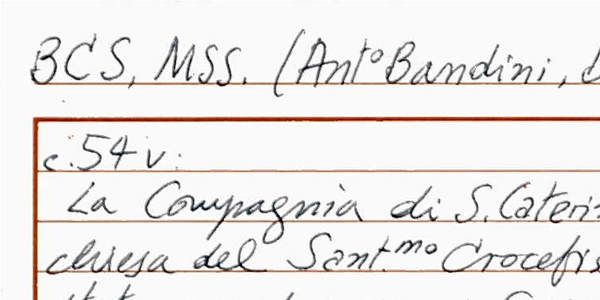 BCS, MSS. (Ant° Bandini,
c. 54 v:
La Compagnia di S. Caterin
chiesa del Sant.mo Crocefis